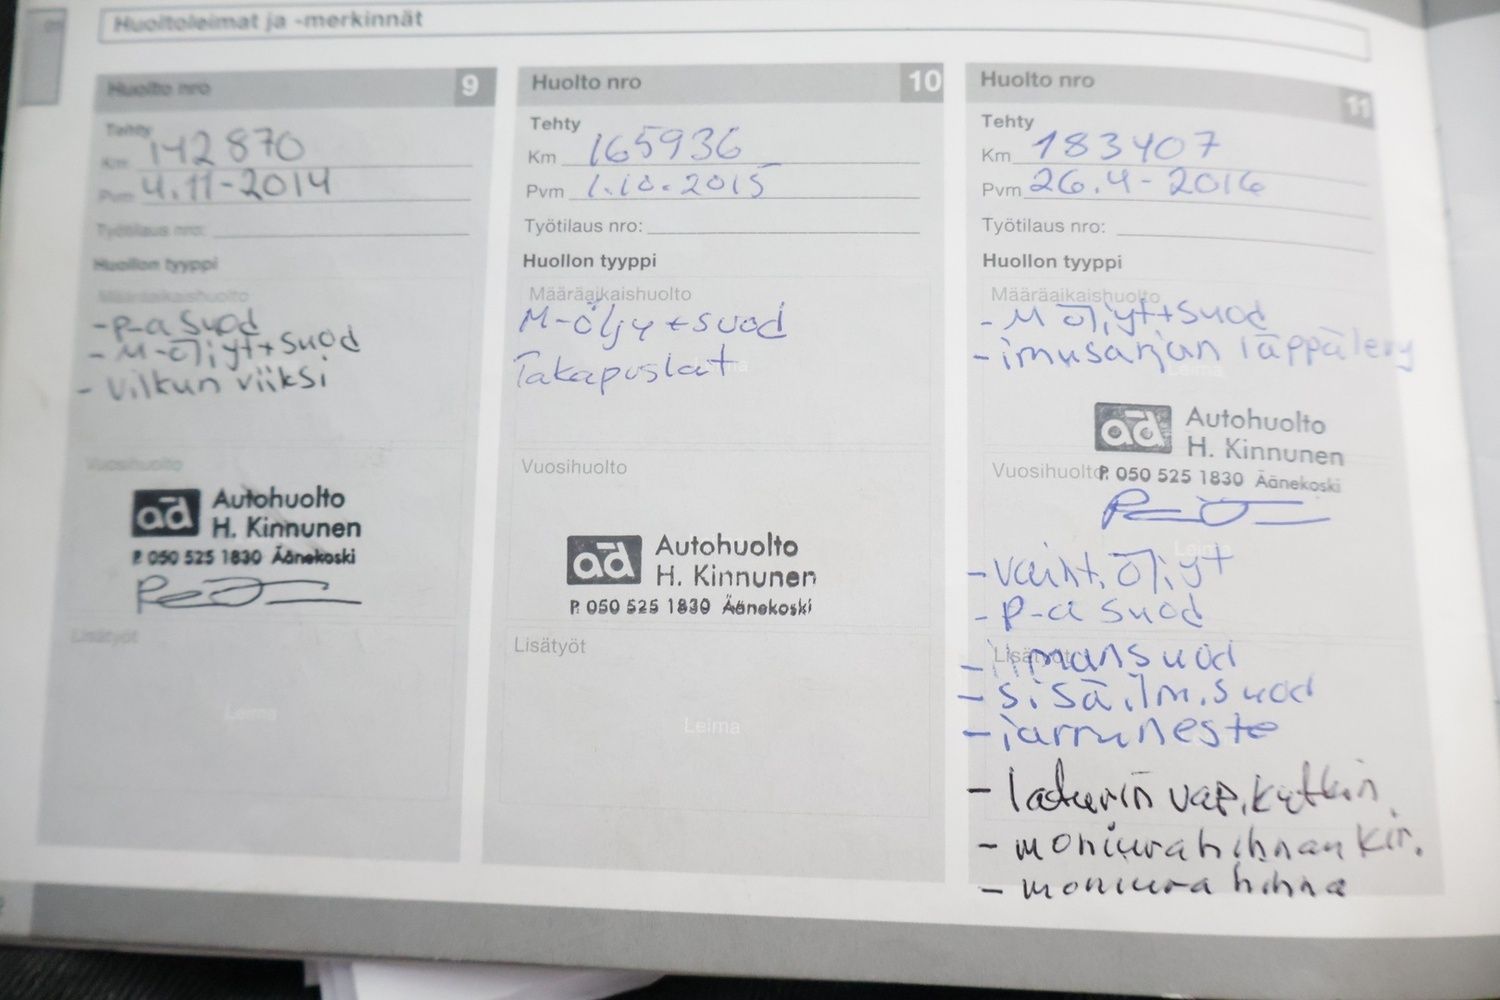 Huoltoleimat ja -merkinnät
Huolto nro 9
Tehty
Km 142870
Pvm 4.11-2014
Työtilaus nro:
Huollon tyyppi
Määräaikaishuolto
- p-a suod
- M-öljyt+suod
- vilkun viiksi
Vuosihuolto
ad Autohuolto
H. Kinnunen
P. 050 525 1830 Äänekoski
Lisätyöt
Leima
Huolto nro 10
Tehty
Km 165936
Pvm 1.10.2015
Työtilaus nro:
Huollon tyyppi
Määräaikaishuolto
M-öljy+suod
Takapuslat
Vuosihuolto
ad Autohuolto
H. Kinnunen
P. 050 525 1830 Äänekoski
Lisätyöt
Leima
Huolto nro 11
Tehty
Km 183407
Pvm 26.4-2016
Työtilaus nro:
Huollon tyyppi
Määräaikaishuolto
- M öljyt+suod
- imusarjan läppälevy
Leima
ad Autohuolto
H. Kinnunen
Vuosihuolto
P. 050 525 1830 Äänekoski
Leima
- vaiht. öljyt
- p-a suod
Lisätyöt
- ilmansuod
- sisä.ilm.suod
- jarruneste
- laturin vap.kytkin
- moniurahihnan kir.
- moniura hihna